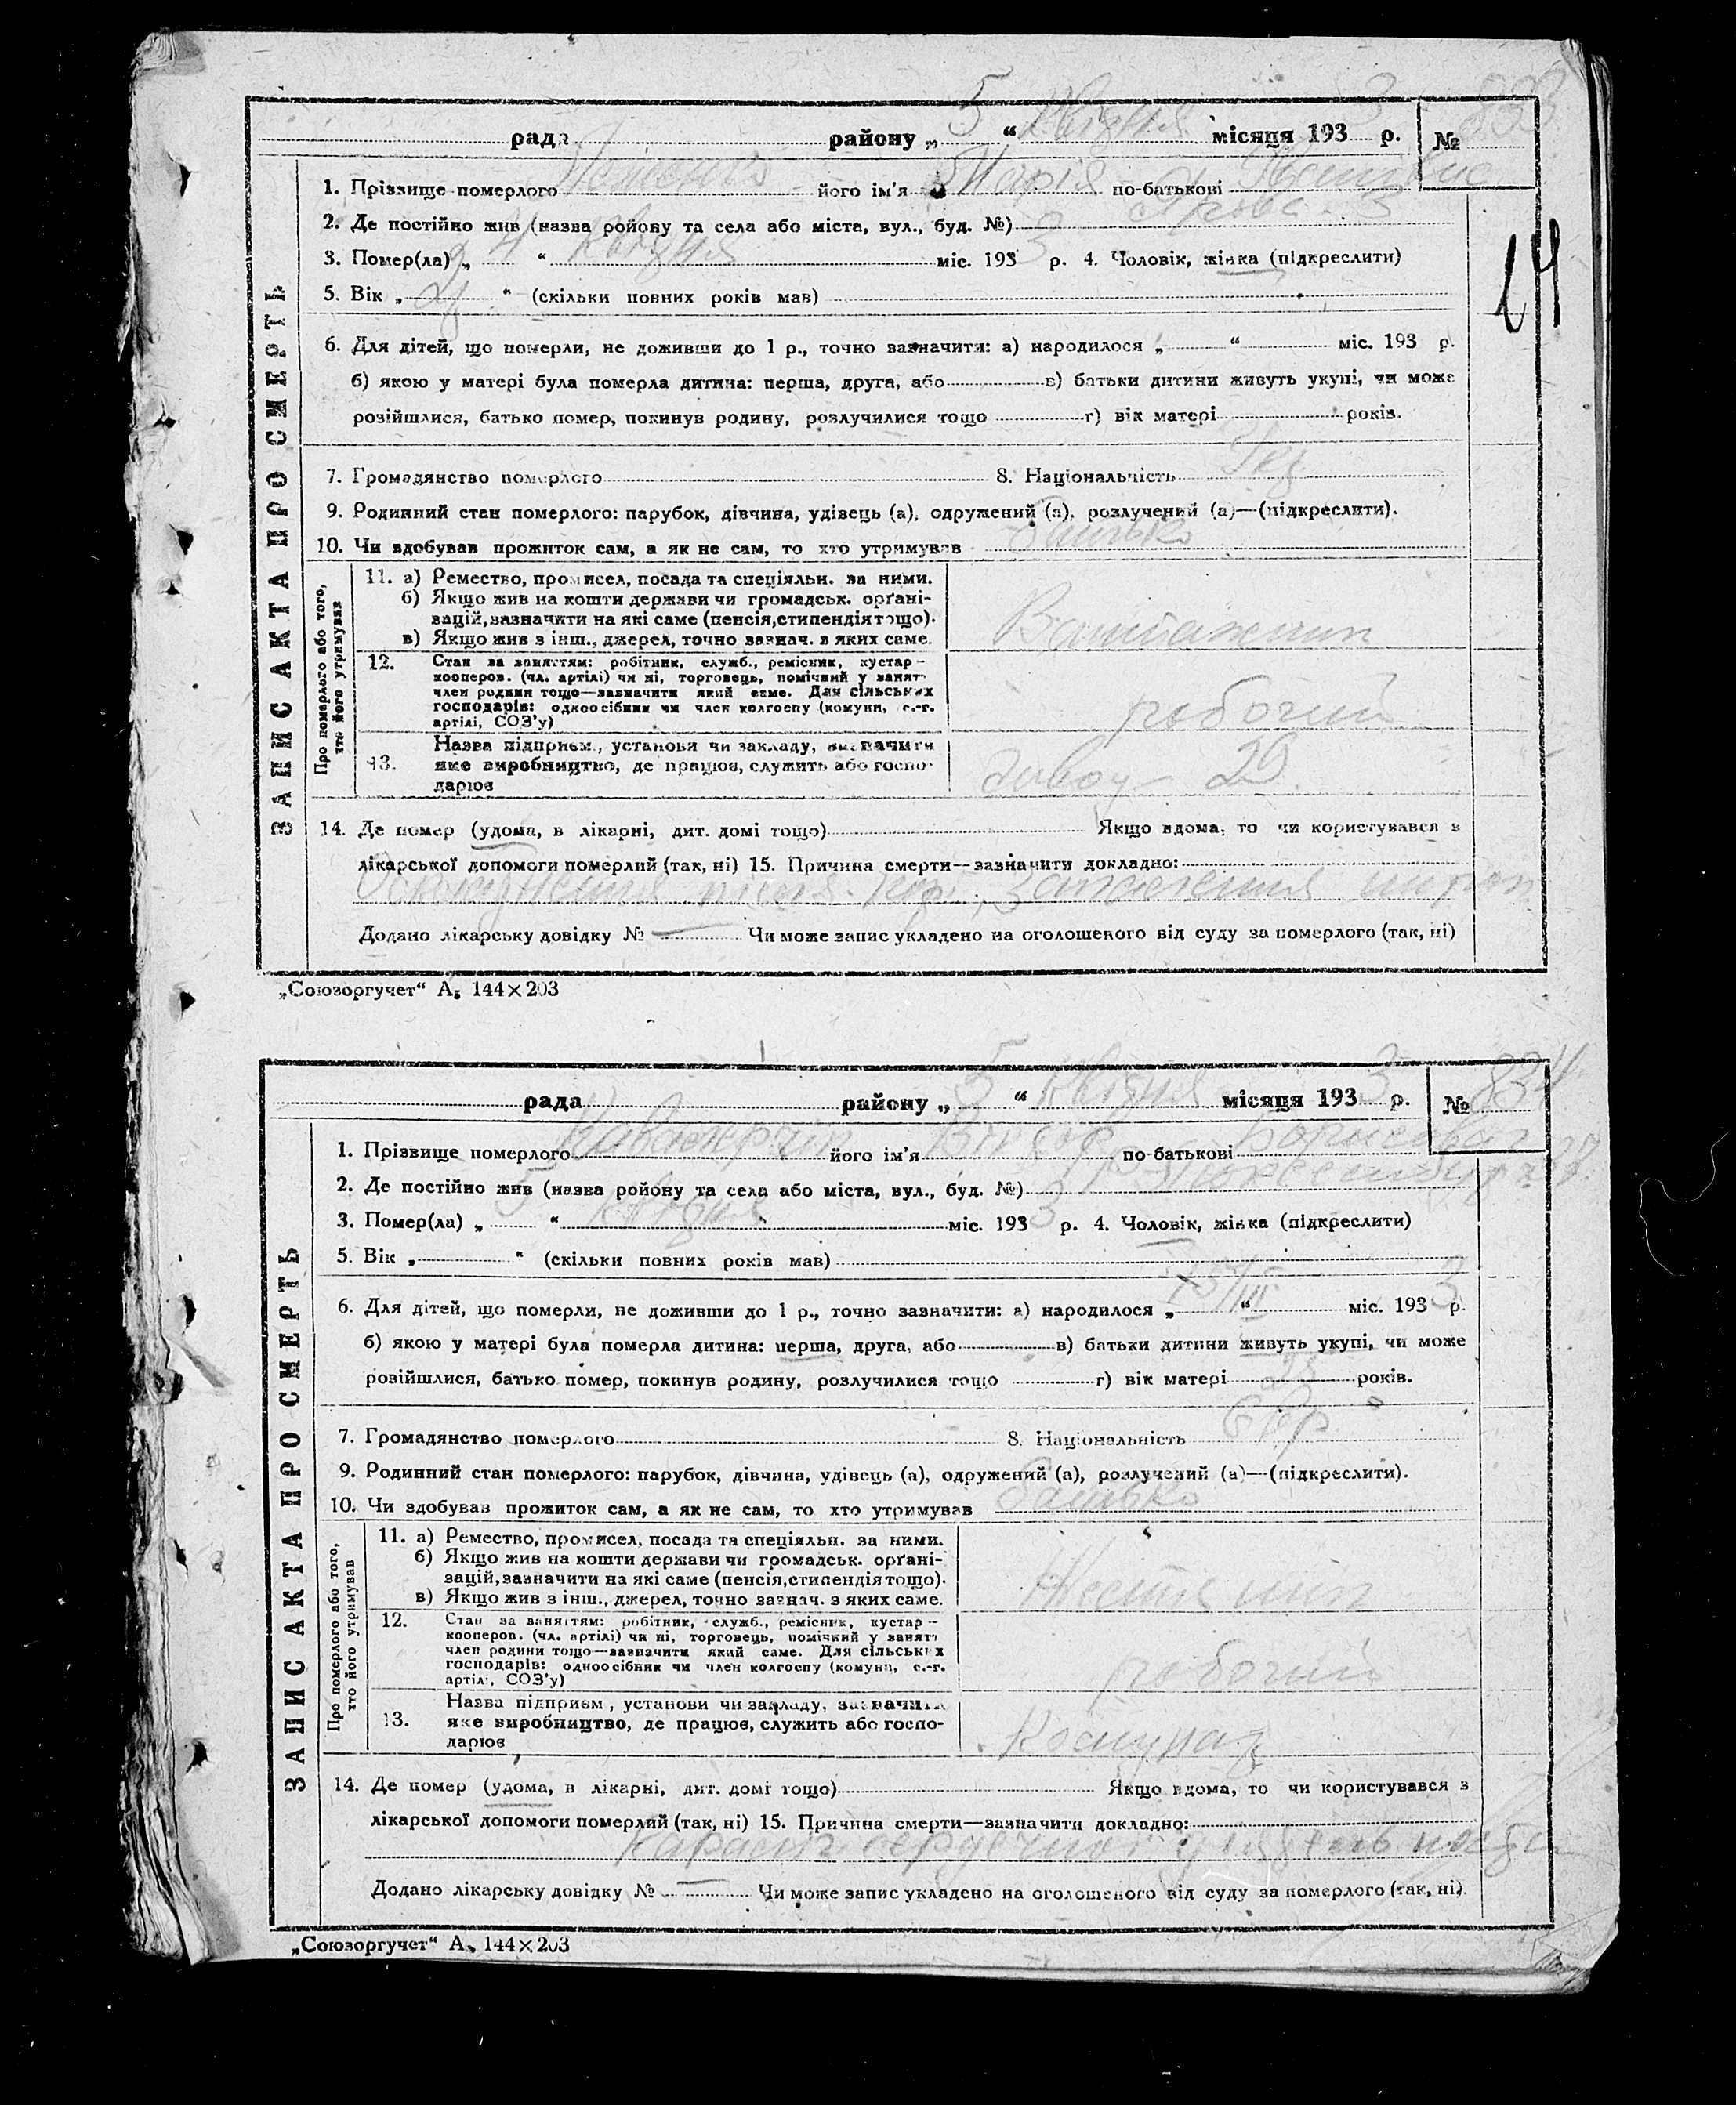 5 квітня 3 833
рада району „ “ місяця 193 р. №
1. Прізвище померлого його ім'я Марія по-батькові Іванівна
2. Де постійно жив (назва ройону та села або міста, вул., буд. №)
3. Помер(ла) „ 4 “ квітня міс. 193 3 р. 4. Чоловік, жінка (підкреслити)
5. Вік „ 2 “ (скільки повних років мав)
6. Для дітей, що померли, не доживши до 1 р., точно зазначити: а) народилося „ “ міс. 193 р.
б) якою у матері була померла дитина: перша, друга, або в) батьки дитини живуть укупі, чи може
розійшлися, батько помер, покинув родину, розлучилися тощо г) вік матері років.
7. Громадянство померлого 8. Національність
9. Родинний стан померлого: парубок, дівчина, удівець (а), одружений (а), розлучений (а)—(підкреслити).
10. Чи здобував прожиток сам, а як не сам, то хто утримував батько
11. а) Ремество, промисел, посада та спеціяльн. за ними.
б) Якщо жив на кошти держави чи громадськ. орґані-
зацій, зазначити на які саме (пенсія, стипендія тощо).
в) Якщо жив з інш., джерел, точно зазнач. з яких саме.
Вантажник
12. Стан за заняттям: робітник, служб., ремісник, кустар—
кооперов. (чл. артілі) чи ні, торговець, помічний у занят.
член родини тощо—зазначити який саме. Для сільських
господарів: одноосібник чи член колгоспу (комуни, с.-г.
артілі, СОЗ'у)
робочий
Назва підприєм., установи чи закладу, зазначити
13. яке виробництво, де працює, служить або госпо-
дарює
завод 29
14. Де помер (удома, в лікарні, дит. домі тощо) Якщо вдома, то чи користувався з
лікарської допомоги померлий (так, ні) 15. Причина смерти—зазначити докладно:
Ускладнення після запалення
Додано лікарську довідку № — Чи може запис укладено на оголошеного від суду за померлого (так, ні)
ЗАПИС АКТА ПРО СМЕРТЬ
Про померлого або того,
хто його утримував
„Союзоргучет“ А5 144×203
5 квітня 3 834
рада району „ “ місяця 193 р. №
1. Прізвище померлого його ім'я Віктор по-батькові Борисович
2. Де постійно жив (назва ройону та села або міста, вул., буд. №)
3. Помер(ла) „ 5 “ квітня міс. 193 3 р. 4. Чоловік, жінка (підкреслити)
5. Вік „ “ (скільки повних років мав)
6. Для дітей, що померли, не доживши до 1 р., точно зазначити: а) народилося „ 15/III “ міс. 193 3 р.
б) якою у матері була померла дитина: перша, друга, або в) батьки дитини живуть укупі, чи може
розійшлися, батько помер, покинув родину, розлучилися тощо г) вік матері років.
7. Громадянство померлого 8. Національність Євр.
9. Родинний стан померлого: парубок, дівчина, удівець (а), одружений (а), розлучений (а)—(підкреслити).
10. Чи здобував прожиток сам, а як не сам, то хто утримував батько
11. а) Ремество, промисел, посада та спеціяльн. за ними.
б) Якщо жив на кошти держави чи громадськ. орґані-
зацій, зазначити на які саме (пенсія, стипендія тощо).
в) Якщо жив з інш., джерел, точно зазнач. з яких саме.
12. Стан за заняттям: робітник, служб., ремісник, кустар—
кооперов. (чл. артілі) чи ні, торговець, помічний у занят.
член родини тощо—зазначити який саме. Для сільських
господарів: одноосібник чи член колгоспу (комуни, с.-г.
артілі, СОЗ'у)
робочий
Назва підприєм., установи чи закладу, зазначити
13. яке виробництво, де працює, служить або госпо-
дарює
14. Де помер (удома, в лікарні, дит. домі тощо) Якщо вдома, то чи користувався з
лікарської допомоги померлий (так, ні) 15. Причина смерти—зазначити докладно:
параліч сердечної
Додано лікарську довідку № — Чи може запис укладено на оголошеного від суду за померлого (так, ні)
ЗАПИС АКТА ПРО СМЕРТЬ
Про померлого або того,
хто його утримував
„Союзоргучет“ А5 144×203